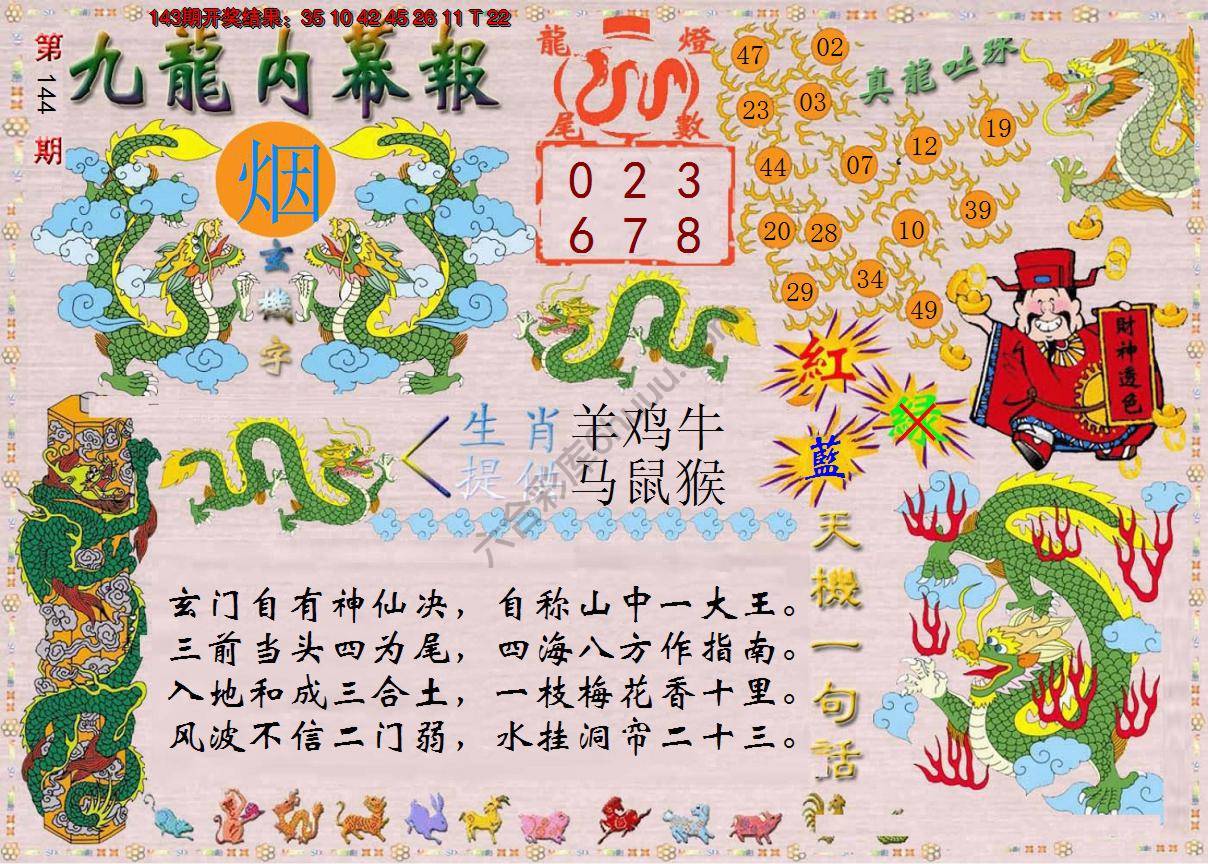 143期开奖结果：35 10 42 45 26 11 T 22
第144期
九龍内幕報
烟
玄機字
龍燈
尾數
0 2 3
6 7 8
真龍吐珠
47
02
23
03
19
12
44
07
39
20
28
10
34
29
49
財神透色
紅
绿
藍
生肖
提供
羊鸡牛
马鼠猴
六合彩库
天機一句話
玄门自有神仙决，自称山中一大王。
三前当头四为尾，四海八方作指南。
入地和成三合土，一枝梅花香十里。
风波不信二门弱，水挂洞帘二十三。